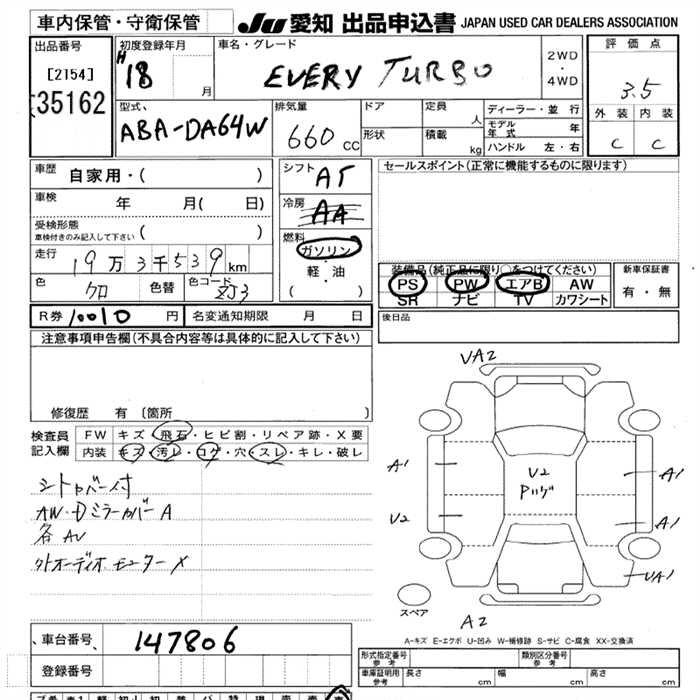 車内保管・守衛保管
JU 愛知 出品申込書 JAPAN USED CAR DEALERS ASSOCIATION
出品番号
[2154]
35162
初度登録年月
H 18 月
車名・グレード
EVERY TURBO
2WD
・
4WD
評価点
3.5
外装 内装
C C
型式
ABA-DA64W
排気量
660 cc
ドア
形状
定員 人
積載 kg
ディーラー・並行
モデル年式 年
ハンドル 左・右
車歴 自家用・( )
車検 年 月( 日)
受検形態
車検付きのみ記入して下さい ( )
走行 19万3千539km
色 クロ 色替 色コード ZJ3
シフト AT
冷房 AA
燃料
ガソリン
・
軽・油
( )
セールスポイント(正常に機能するものに限ります)
装備品(純正品に限り○をつけてください)
PS PW エアB AW
SR ナビ TV カワシート
新車保証書
有・無
R券 10010 円 名変通知期限 月 日
後日品
注意事項申告欄(不具合内容等は具体的に記入して下さい)
修復歴 有 〔箇所 〕
検査員記入欄
FW キズ・飛石・ヒビ割・リペア跡・X要
内装 キズ・汚レ・コゲ・穴・スレ・キレ・破レ
シートカバー付
AW・Dミラーカバー A
各AU
外オーディオ モニター X
VA2
A1
U2
U2
Pハゲ
A1
A1
VA1
A2
スペア
A-キズ E-エクボ U-凹み W-補修跡 S-サビ C-腐食 XX-交換済
車台番号 147806
登録番号
形式指定番号
参考
類別区分番号
参考
車庫証明用
参考
長さ cm 幅 cm 高さ cm